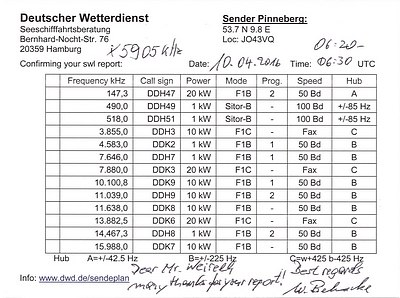 Deutscher Wetterdienst
Seeschifffahrtsberatung
Bernhard-Nocht-Str. 76
20359 Hamburg
x5905 kHz
Sender Pinneberg:
53.7 N 9.8 E
Loc: JO43VQ
06:20-
Confirming your swl report: Date: 10.04.2016 Time: 06:30 UTC
Frequency kHz Call sign Power Mode Prog. Speed Hub
147,3 DDH47 20 kW F1B 2 50 Bd A
490,0 DDH49 1 kW Sitor-B - 100 Bd +/-85 Hz
518,0 DDH51 1 kW Sitor-B - 100 Bd +/-85 Hz
3.855,0 DDH3 10 kW F1C - Fax C
4.583,0 DDK2 1 kW F1B 1 50 Bd B
7.646,0 DDH7 1 kW F1B 1 50 Bd B
7.880,0 DDK3 20 kW F1C - Fax C
10.100,8 DDK9 10 kW F1B 1 50 Bd B
11.039,0 DDH9 10 kW F1B 2 50 Bd B
11.638,0 DDK8 1 kW F1B - 50 Bd B
13.882,5 DDK6 20 kW F1C - Fax C
14.467,3 DDH8 1 kW F1B 2 50 Bd B
15.988,0 DDK7 10 kW F1B - 50 Bd B
Hub A=+/-42.5 Hz B=+/-225 Hz C=w+425 b-425 Hz
Dear Mr.
many thanks for your report!!
Best regards
Info: www.dwd.de/sendeplan